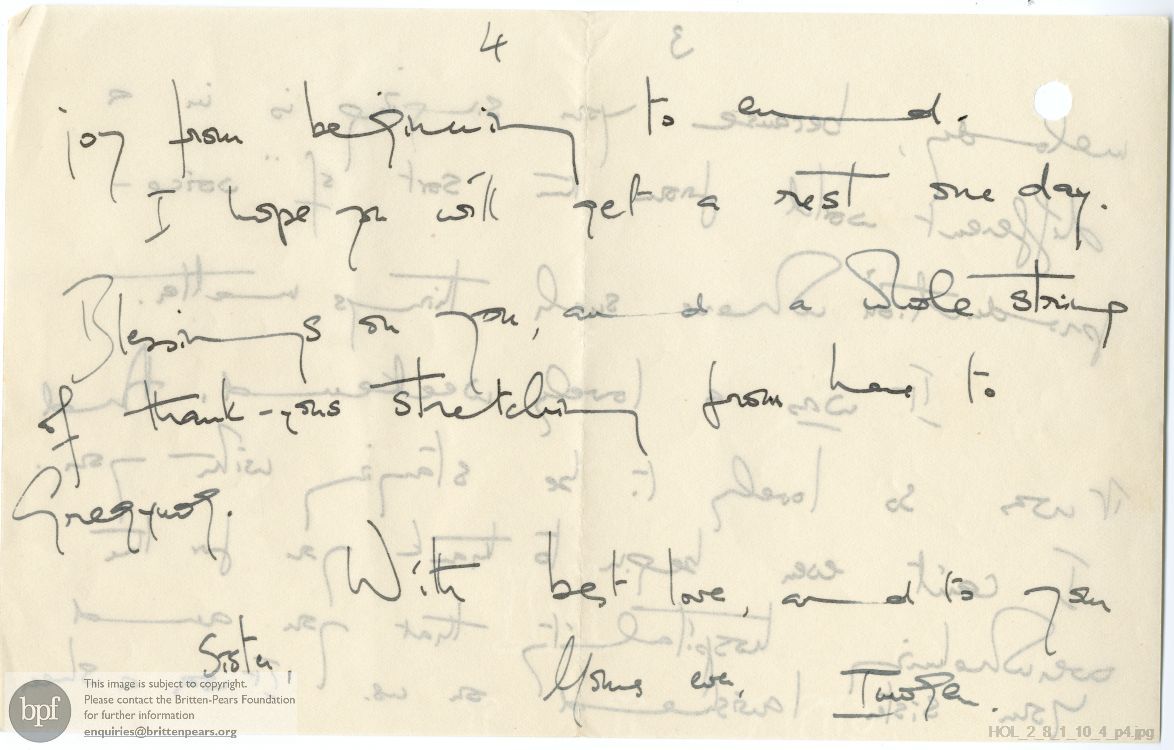 4
joy from beginning to end.
I hope you will get a rest one day.
Blessings on you, and a whole string
of thank-yous stretching from here to
With best love, and to your
Sister,
Yours ever,
Imogen.
This image is subject to copyright.
Please contact the Britten-Pears Foundation
for further information
enquiries@brittenpears.org
bpf
HOL_2_8_1_10_4_p4.jpg